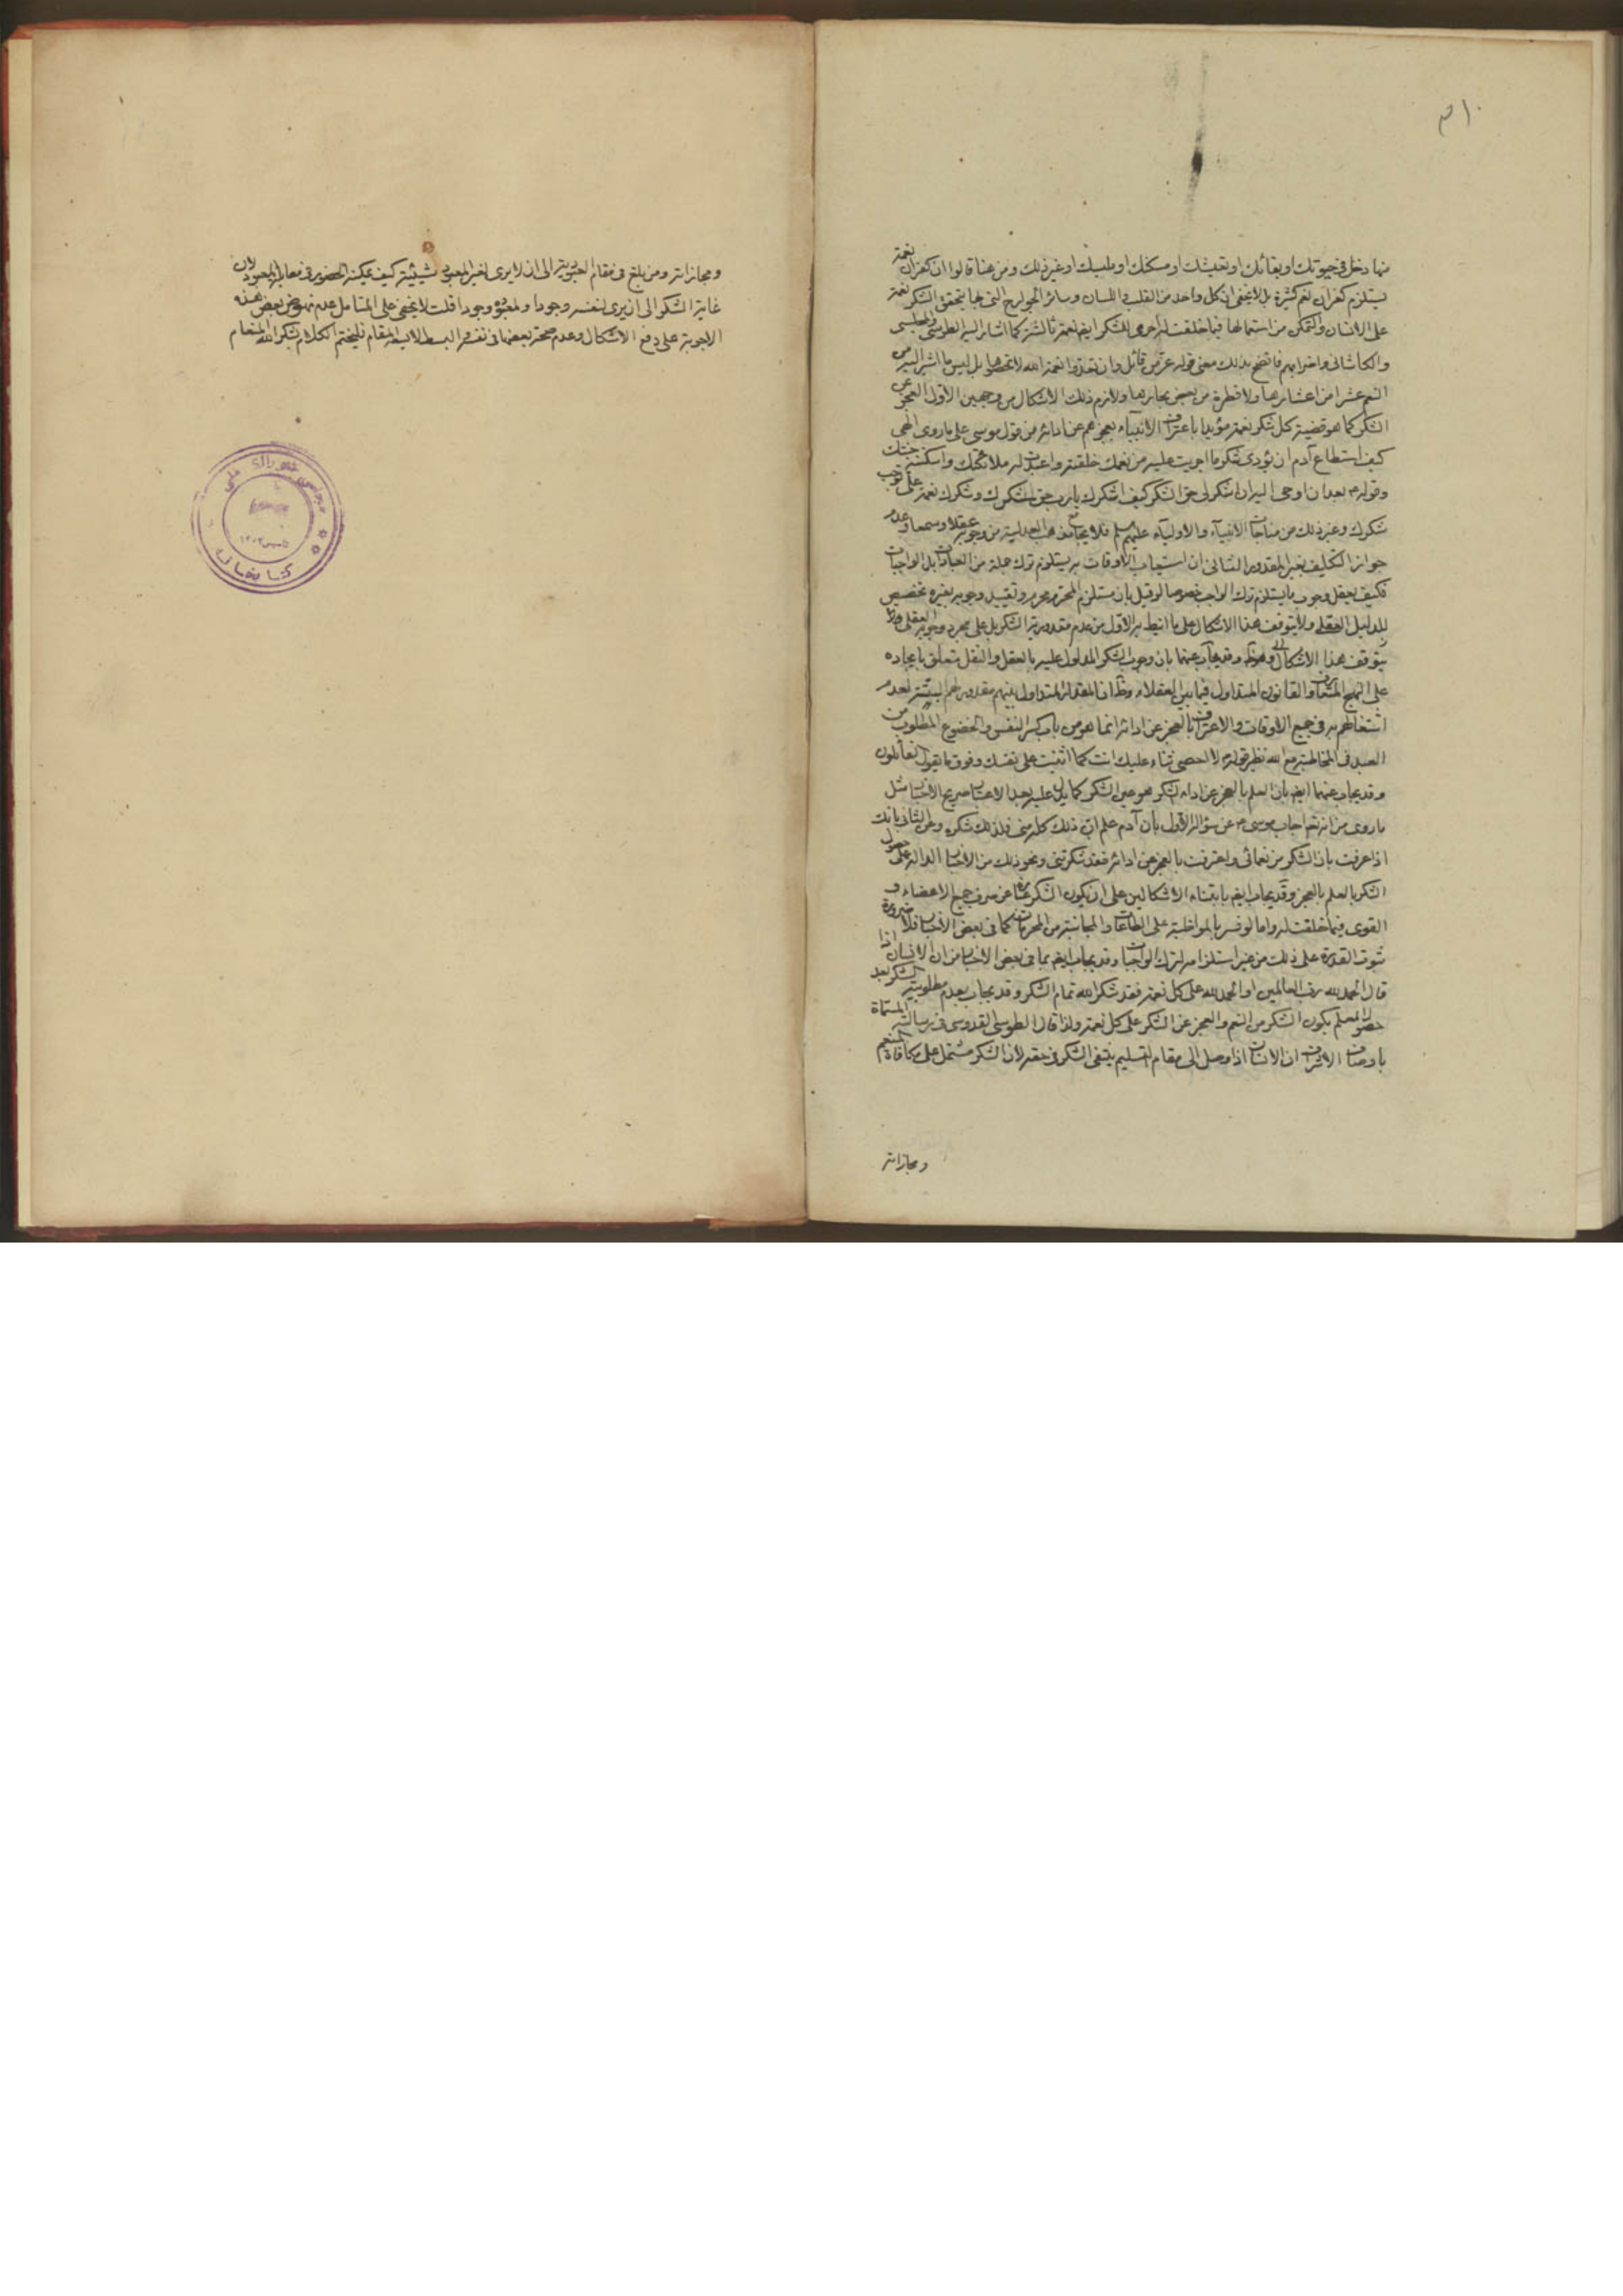 ٣١٠
منها دخل في حيوتك او بقائك او تعيشك او مسكنك او ملبسك او غير ذلك ومن هنا قالوا ان كفران نعمة
يستلزم كفران نعم كثيرة بل لا يخفى ان كل واحد من القلب واللسان وسائر الجوارح التي بها يتحقق الشكر نعمة
على الانسان والتمكن من استعمالها فيما خلقت له اخرى والشكر ايض نعمة ثالثة كما اشار اليه الطوسي والمجلسي
والكاشاني واضرابهم فاتضح بذلك معنى قوله عز من قائل وان تعدوا نعمة الله لا تحصوها بل ليس ما اشير اليه من
النعم عشرا من اعشارها ولا قطرة من بعض بحارها ولازم ذلك الاشكال من وجهين الاول العجز عن
الشكر كما هو قضية كل شكر نعمة مؤيدا باعتراف الانبياء بعجزهم عن ادائه من قول موسى على ما روى الهي
كيف استطاع آدم ان يؤدى شكر ما اجريت عليه من نعمك خلقته واسجدت له ملائكتك واسكنته جنتك
وقوله بعد ان اوحى اليه ان اشكرلى حق الشكر كيف اشكرك يا رب حق شكرك وشكرك نعمة على توجب
شكرك وغير ذلك من مناجات الانبياء والاولياء عليهم سلم فلا يجامع مذهب العدلية من وجوبه عقلا وسمعا وعدم
جواز التكليف بغير المقدور الثاني ان استيعاب الاوقات به يستلزم ترك جملة من العبادات بل الواجبات
فكيف يعقل وجوب ما يستلزم ترك الواجب خصوصا لو قيل بان مستلزم المحرم محرم وتقييد وجوبه بغيره تخصيص
للدليل العقلي ولا يتوقف هذا الاشكال على ما انيط به الاول من عدم مقدورية الشكر بل على مجرد وجوبه العقلي ولا
يتوقف هذا الاشكال وقد يجاب عنهما بان وجوب الشكر المدلول عليه بالعقل والنقل متعلق بايجاده
على النهج المتعارف والقانون المتداول فيما بين العقلاء وظ ان المقدار المتداول بينهم مقدور لهم ليستر لعدم
اشتغالهم به في جميع الاوقات والاعتراف بالعجز عن ادائه انما هو من باب كسر النفس والخضوع المطلوب من
العبد في المخاطبة مع الله نظير قوله لا احصى ثناء عليك انت كما اثنيت على نفسك وفوق ما يقول القائلون
وقد يجاب عنهما ايض بان العلم بالعجز عن اداء الشكر هو عين الشكر كما يدل عليه بعد الاعتبار صريح الاخبار مثل
ما روى من انه تع اجاب موسى عن سؤاله الاول بان آدم علم ان ذلك كله منى فلذلك شكره وعن الثاني بانك
اذا عرفت بان الشكر من نعمائي واعترفت بالعجز عن ادائه فقد شكرتني ونحو ذلك من الاخبار الدالة على حصول
الشكر بالعلم بالعجز وقد يجاب ايض بابتناء الاشكالين على ان يكون الشكر عبارة عن صرف جميع الاعضاء و
القوى فيما خلقت له واما لو فسر بالمواظبة على الطاعات والمجانبة من المحرمات كما في بعض الاخبار فلا ضرورة
ثبوت القدرة على ذلك من غير استلزامه لترك الواجبات وقد يجاب ايض بما في بعض الاخبار من ان الانسان اذا
قال الحمد لله رب العالمين او الحمد لله على كل نعمة فقد شكر الله تمام الشكر وقد يجاب بعدم مطلوبية الشكر بعد
حصول العلم بكون الشكر من النعم والعجز عن الشكر على كل نعمة ولذا قال الطوسي القدوسي في رسالته المسماة
باوصاف الاشراف ان الانسان اذا وصل الى مقام التسليم ينتفى الشكر في حقه لان الشكر مشتمل على مكافاة المنعم
ومجازاته
ومجازاته ومن بلغ في مقام العبودية الى ان لا يرى لغير المعبود شيئية كيف يمكنه الحضور في مقابل المعبود لان
غاية الشكر الى ان يرى لنفسه وجودا ولمعبوده وجودا قلت لا يخفى على المتامل عدم نهوض بعض هذه
الاجوبة على دفع الاشكال وعدم صحة بعضها في نفسه والبسط لا يسعه المقام فليختم الكلام بشكر الله المنعام
مجلس شورای ملی
کتابخانه